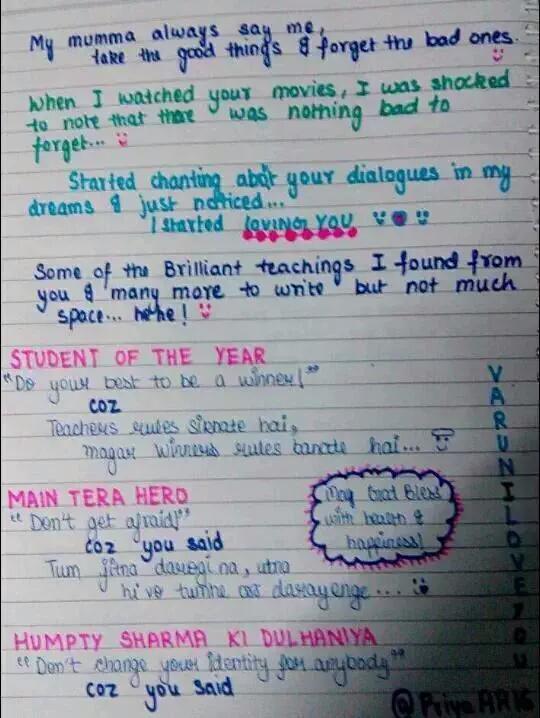 My mumma always say me,
take the good things & forget the bad ones.
When I watched your movies, I was shocked
to note that there was nothing bad to
forget...
Started chanting abot your dialogues in my
dreams & just noticed...
I started LOVING YOU
Some of the Brilliant teachings I found from
you & many more to write but not much
space... hehe!
STUDENT OF THE YEAR
"Do your best to be a winner!"
COZ
Teachers rules sikhate hai,
magar winners rules banate hai...
MAIN TERA HERO
"Don't get afraid!"
COZ you said
Tum jitna darogi na, utna
hi vo tumhe darayenge...
May God Bless
with health &
happiness!
HUMPTY SHARMA KI DULHANIYA
"Don't change your identity for anybody"
COZ you said
VARUN I LOVE YOU
@Priya